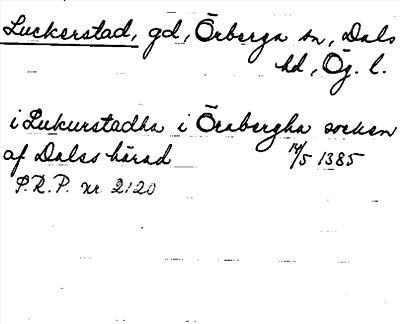 Luckerstad, gd, Örberga sn, Dals
hd, Ög. l.
i Lukurstadha i Örabergha socken
af Dalss härad 14/5 1385
P.R.P. nr 2120